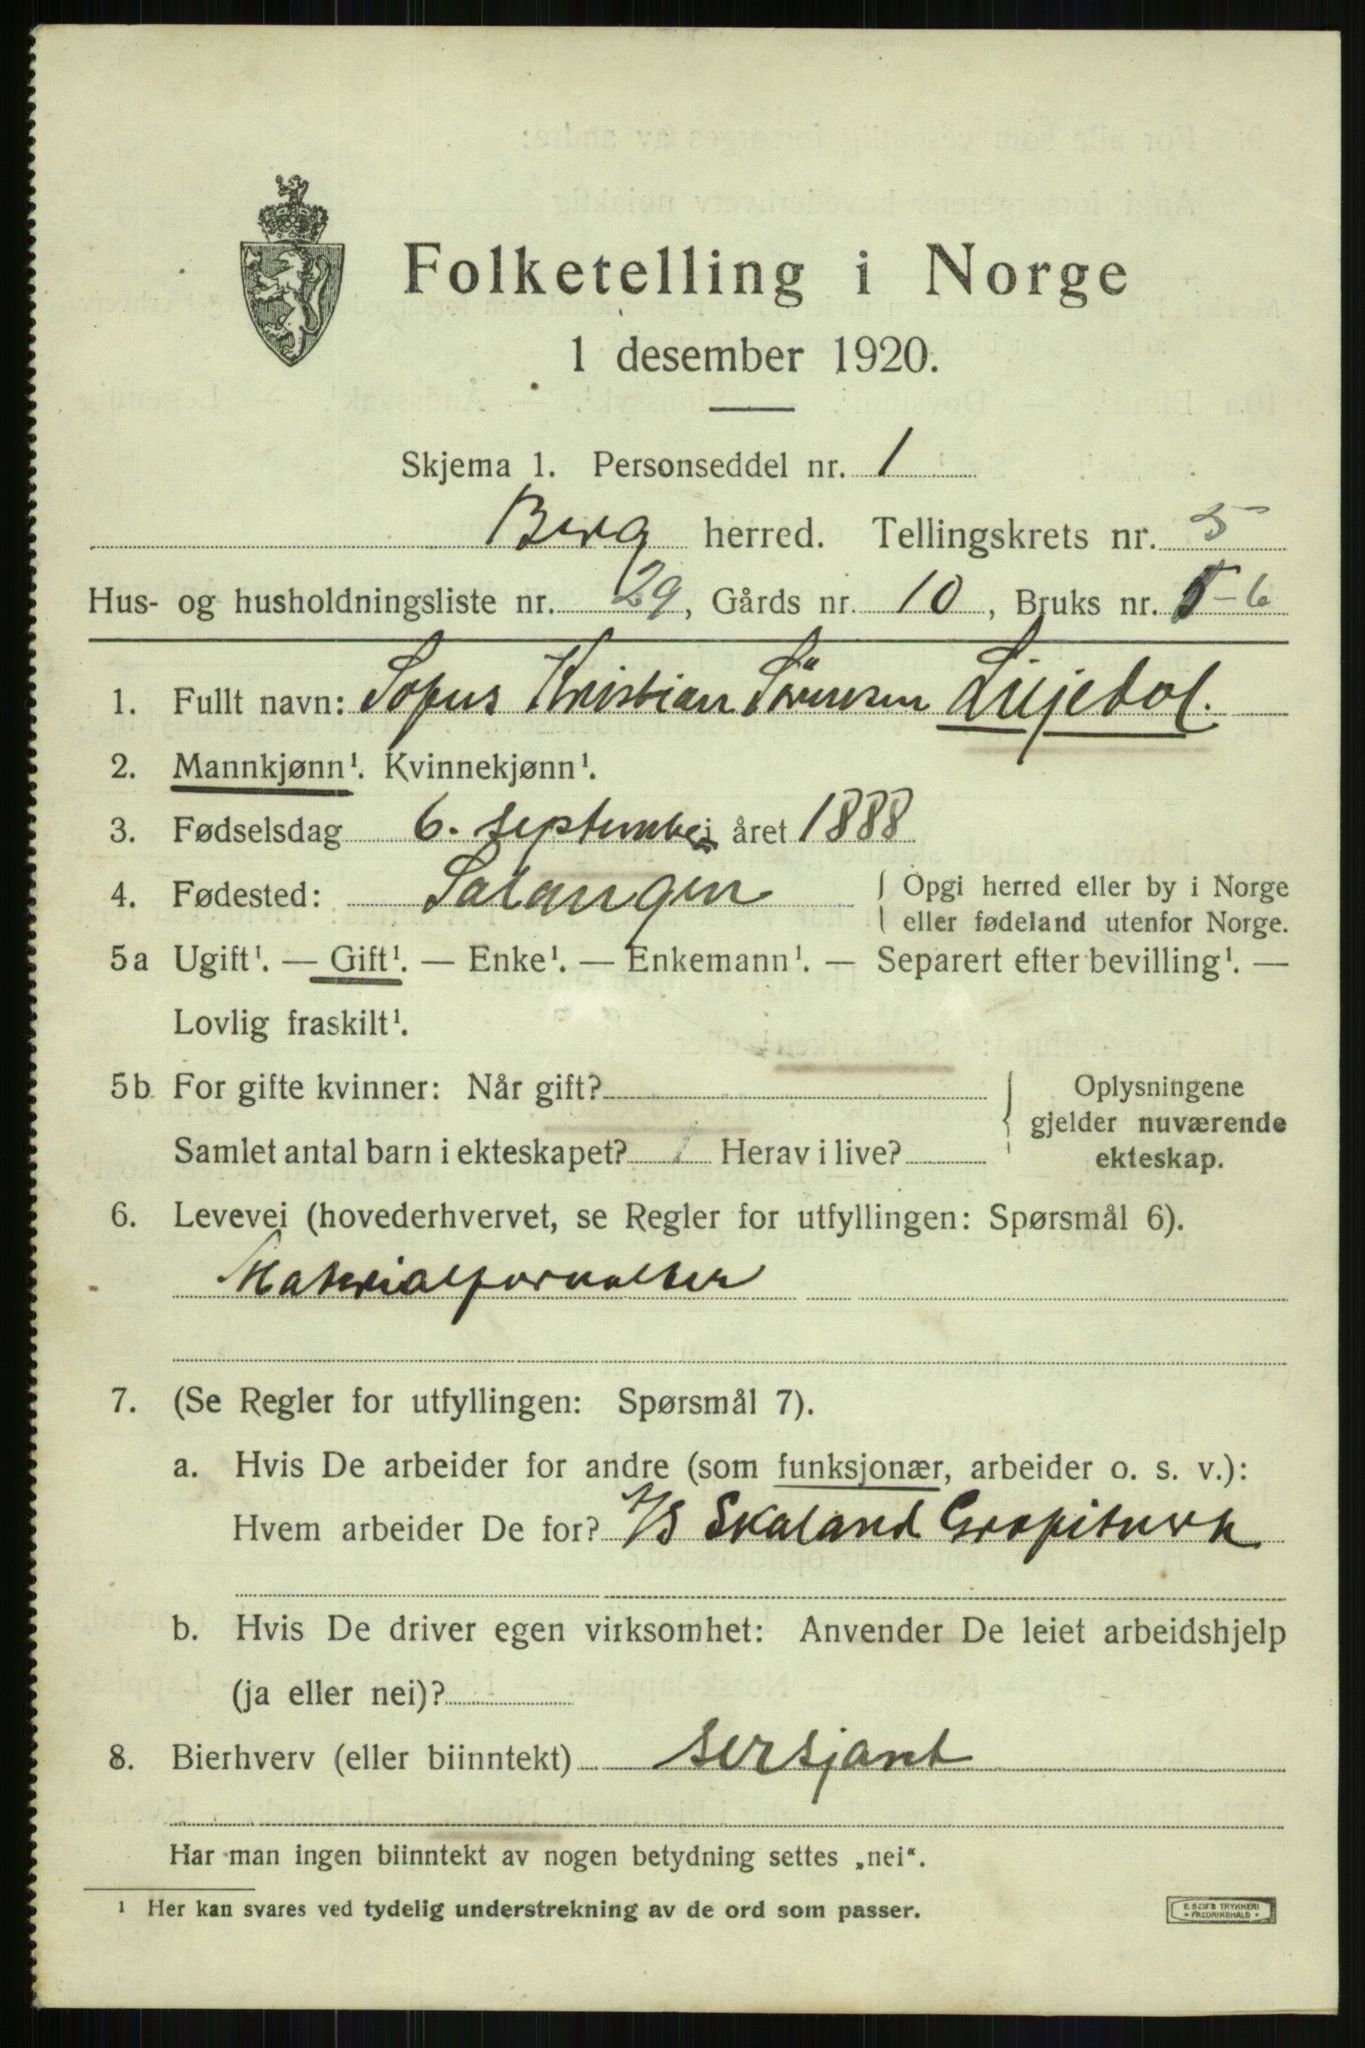 Folketelling i Norge
1 desember 1920.
Skjema 1. Personseddel nr. 1
Berg herred. Tellingskrets nr. 5
Hus- og husholdningsliste nr. 29, Gårds nr. 10, Bruks nr. 5-6
1. Fullt navn: Sofus Kristian Sörensen Liljedal.
2. Mannkjønn¹. Kvinnekjønn¹.
3. Fødselsdag 6. september året 1888
4. Fødested: Salangen { Opgi herred eller by i Norge
eller fødeland utenfor Norge.
5a Ugift¹. — Gift¹. — Enke¹. — Enkemann¹. — Separert efter bevilling¹. —
Lovlig fraskilt¹.
5b For gifte kvinner: Når gift? { Oplysningene
gjelder nuværende
Samlet antal barn i ekteskapet? 1 Herav i live? ekteskap.
6. Levevei (hovederhvervet, se Regler for utfyllingen: Spørsmål 6).
Materialforvalter
7. (Se Regler for utfyllingen: Spørsmål 7).
a. Hvis De arbeider for andre (som funksjonær, arbeider o. s. v.):
Hvem arbeider De for? A/S Skaland Grafitverk
b. Hvis De driver egen virksomhet: Anvender De leiet arbeidshjelp
(ja eller nei)?
8. Bierhverv (eller biinntekt) sersjant
Har man ingen biinntekt av nogen betydning settes „nei“.
¹ Her kan svares ved tydelig understrekning av de ord som passer.
E. SEM'S TRYKKERI
FREDRIKSHALD